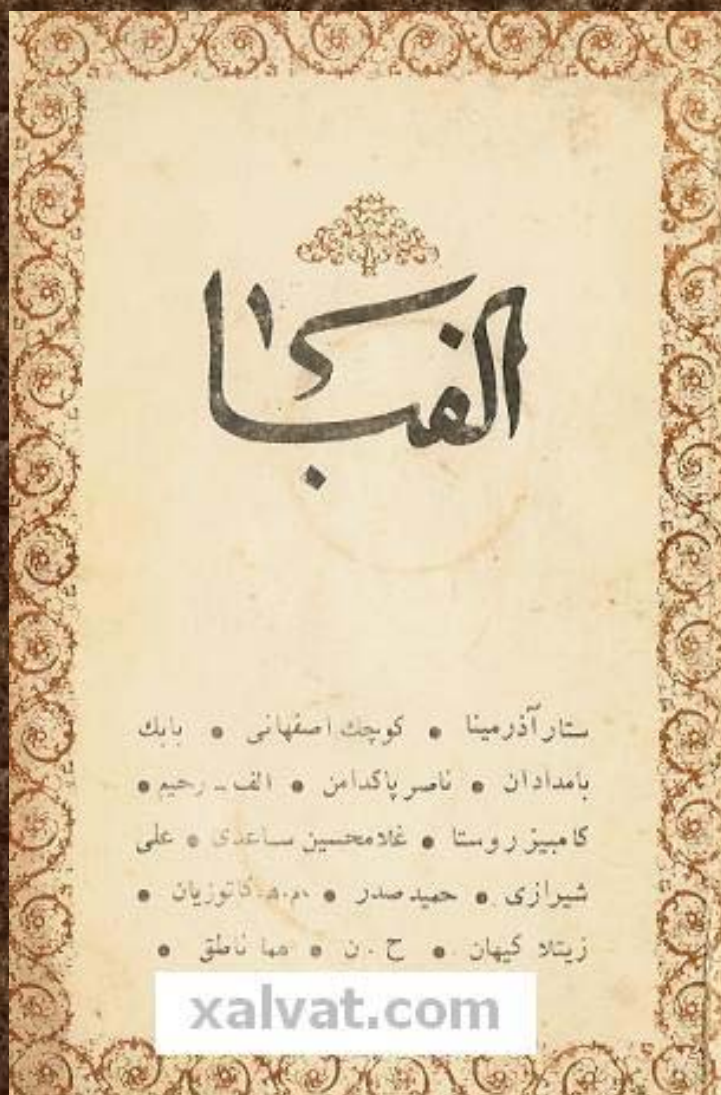 الفبا
ستار آذرمینا • کوچك اصفهانی • بابك
بامدادان • ناصر پاکدامن • الف ـ رحیم •
کامبیز روستا • غلامحسین ساعدی • علی
شیرازی • حمید صدر • م.ه. کاتوزیان •
زیتلا کیهان • ح . ن • هما ناطق •
xalvat.com